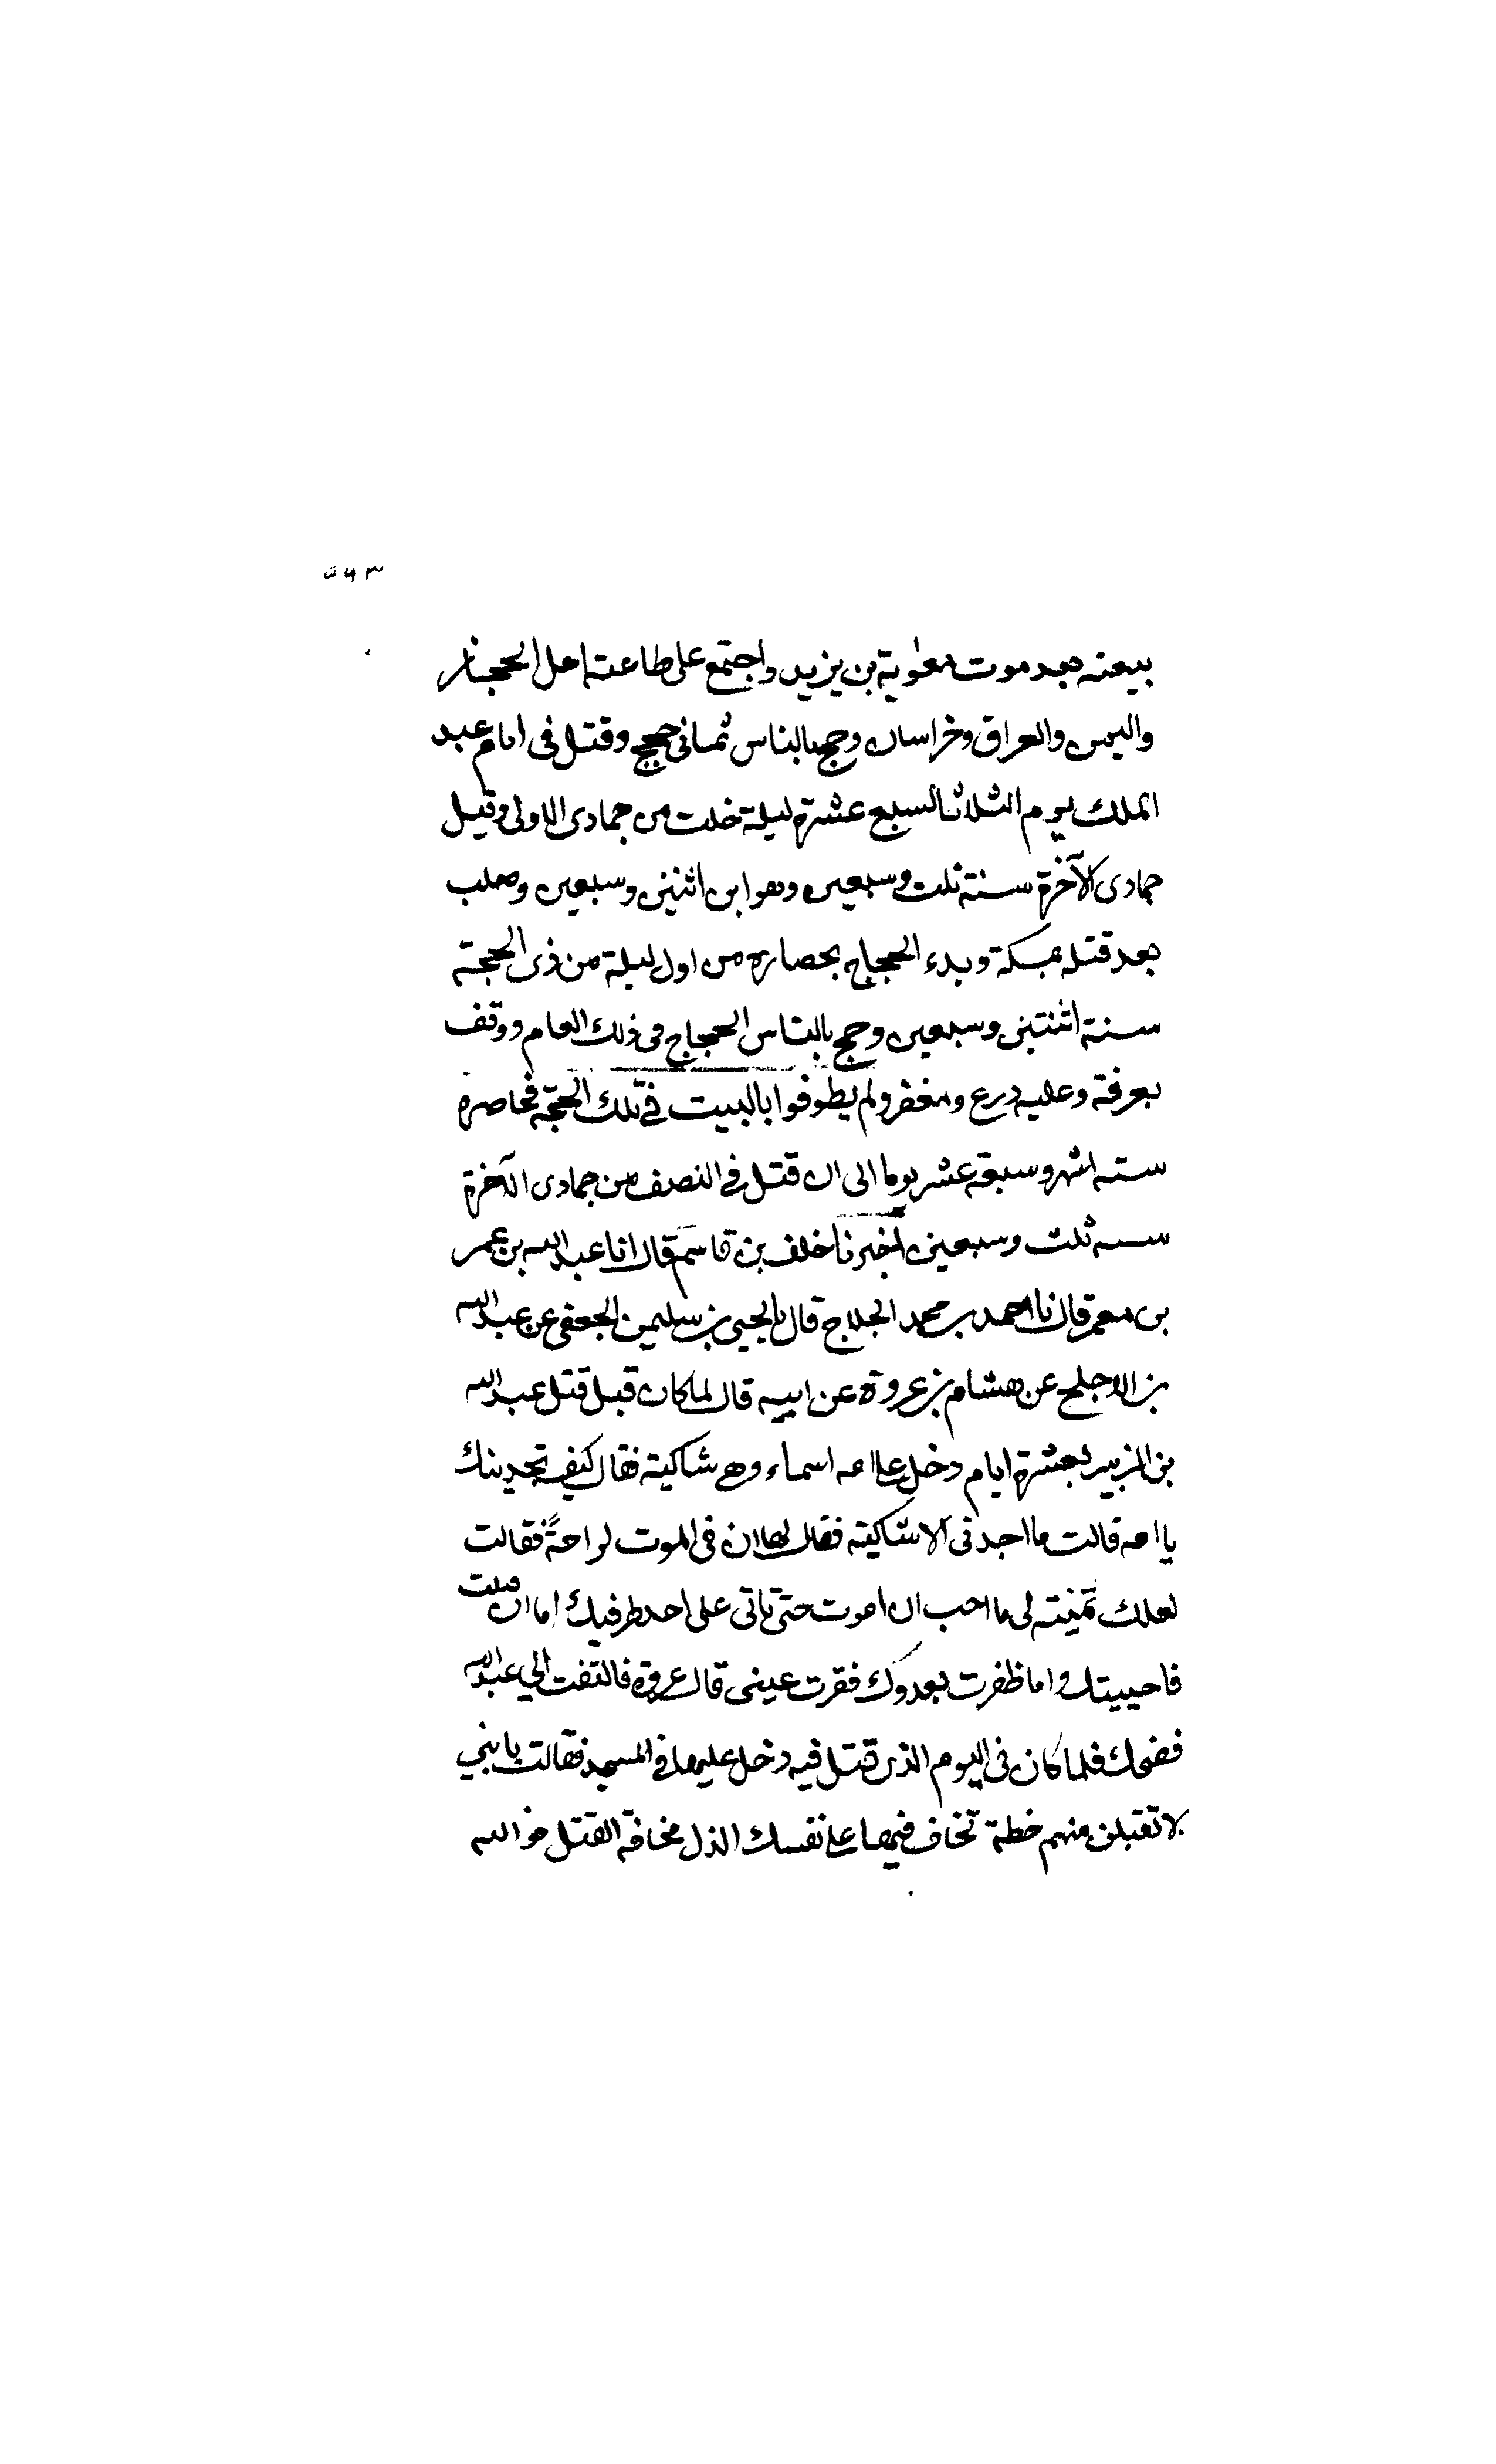 بيعته بعد موت معٰوية بن يزيد واجتمع على طاعته اهل الحجاز
واليمن والعراق وخراسان وحج بالناس ثماني حجج وقتل فى ايام عبد
الملك يوم الثلاثا لسبع عشرة ليلة خلت من جمادى الاولى وقيل
جمادى الآخرة سنة ثلث وسبعين وهو ابن اثنين وسبعين وصلب
بعد قتله بمكة وبدء الحجاج بحصاره من اول ليلة من ذى الحجة
سنة اثنتين وسبعين وحج بالناس الحجاج فى ذلك العام ووقف
بعرفة وعليه درع ومغفر ولم يطوفوا بالبيت في تلك الحجّة فحاصره
ستة اشهر وسبعة عشر يوما الى ان قتل في النصف من جمادى الآخرة
سنه ثلث وسبعين اخبرنا خلف بن قاسم قال انا عبد الله بن عمر
بن معمر قال نا احمد بن محمد الجلاح قال نا يحيى بن سليمن الجعفى عن عبد الله
بن الاجلح عن هشام بن عروة عن ابيه قال لما كان قبل قتل عبد الله
بن الزبير بعشرة ايام دخل على امه اسماء وهى شاكية فقال كيف تجدينك
يا امه قالت ما اجدنى الا شاكية فقال لها ان فى الموت لراحةً فقالت
لعلك تمنيته لى ما احب ان اموت حتى ياتى على احد طرفيك اما ان قتلت
فاحييتك واما ظفرت بعدوك فقرت عينى قال عروة فالتفت الي عبد الله
فضحك فلما كان فى اليوم الذى قتل فيه دخل عليها فى المسجد فقالت يا بني
لا تقبلن منهم خطة تخاف فيها على نفسك الذل مخافة القتل فوالله